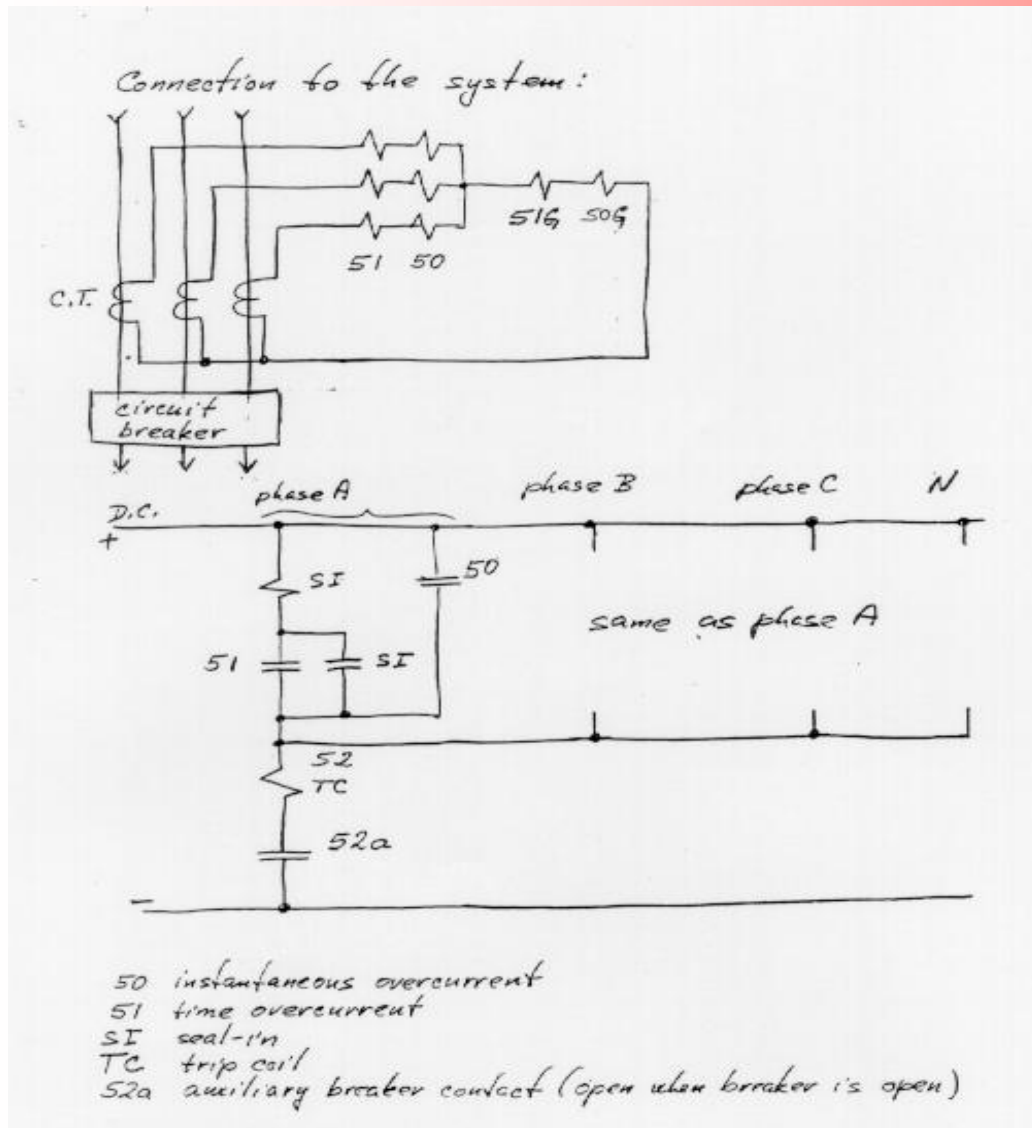 Connection to the system:
51G 50G
51 50
C.T.
circuit
breaker
phase A
phase B
phase C
N
D.C.
+
SI
50
same as phase A
51
SI
52
TC
52a
-
50 instantaneous overcurrent
51 time overcurrent
SI seal-in
TC trip coil
52a auxiliary breaker contact (open when breaker is open)